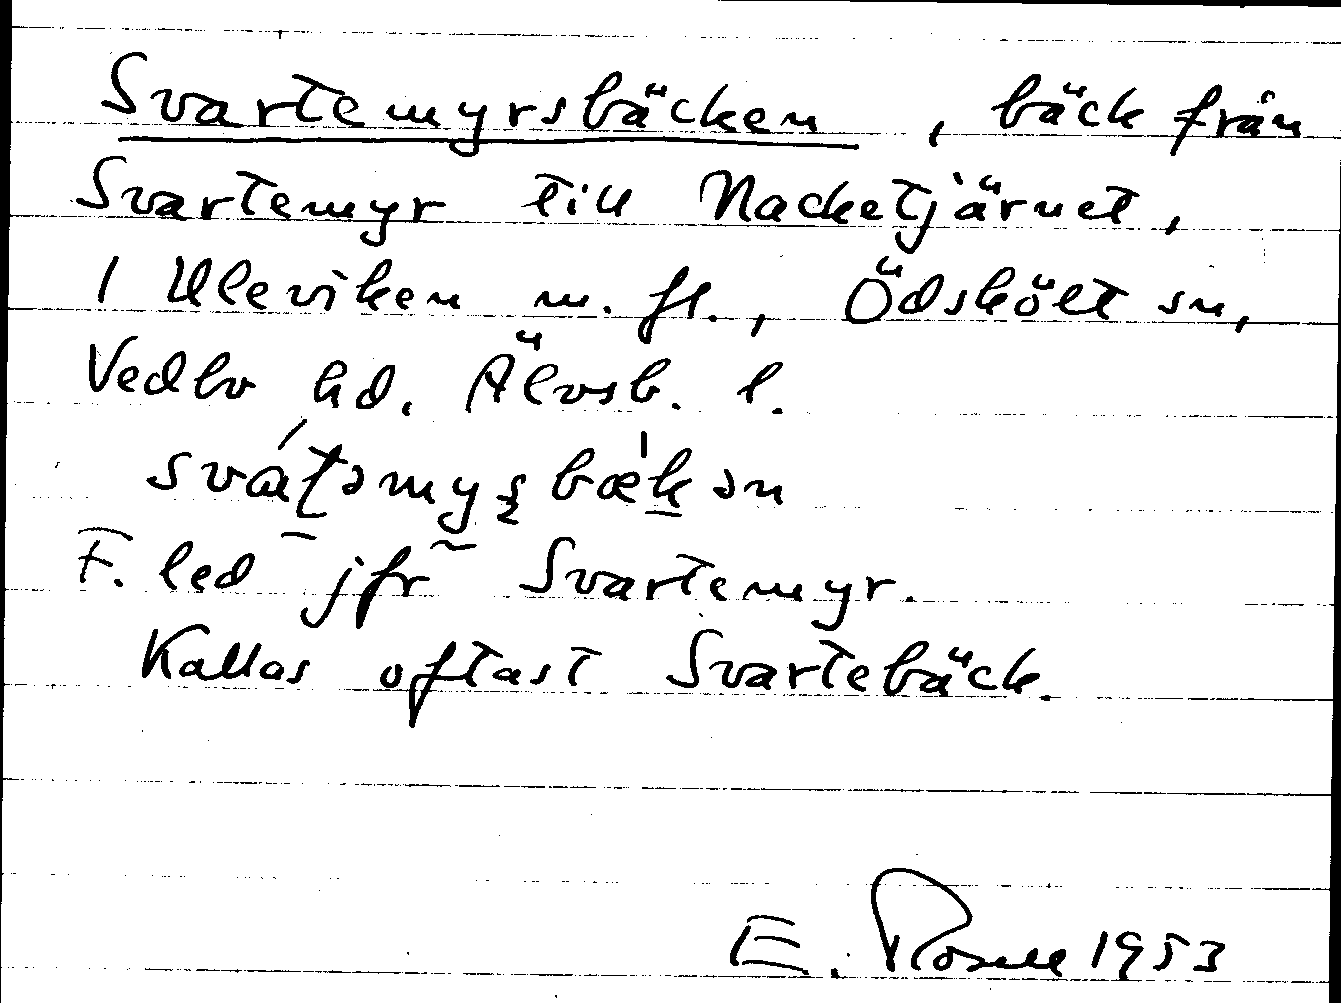 Svartemyrsbäcken, bäck från
Svartemyr till Nacketjärnet,
1 Uleviken m. fl., Ödskölt sn,
Vedbo hd. Älvsb. l.
F. led jfr Svartemyr.
Kallas oftast Svartebäck.
E. Rosell 1953